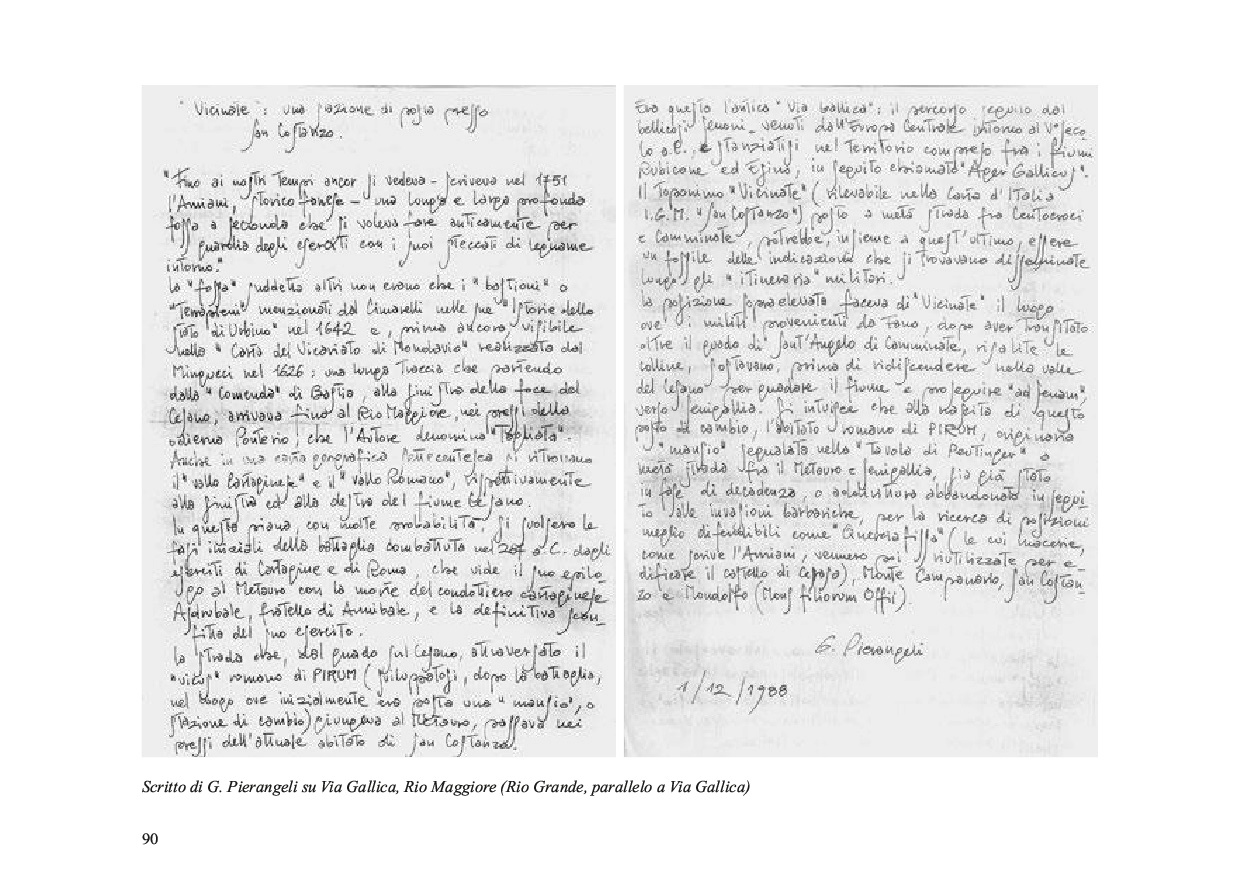 "Vicinate": una stazione di posta presso
San Costanzo.
"Fino ai nostri Tempi ancor si vedeva - scriveva nel 1751
l'Amiani, storico fanese - una lunga e larga profonda
fossa a seconda che si voleva fare anticamente per
guardia degli eserciti con i suoi steccati di legname
intorno."
La "fossa" suddetta altri non erano che i "bastioni" o
"Terrapieni" menzionati dal Cimarelli nelle sue "Istorie dello
Stato di Urbino" nel 1642 e, prima ancora, visibile
nella "Carta del Vicariato di Mondavio" realizzata dal
Mingucci nel 1626: una lunga Traccia che partendo
dalla "Comenda" di Bastia, alla sinistra della foce del
Cesano, arrivava fino al Rio Maggiore, nei pressi della
odierna Ponterio, che l'Autore denomina "Tagliata".
Anche in una carta geografica settecentesca si ritrovano
il "vallo Cartaginese" e il "vallo Romano", rispettivamente
alla sinistra ed alla destra del fiume Cesano.
In questa piana, con molte probabilità, si svolsero le
fasi iniziali della battaglia combattuta nel 207 a.C. dagli
eserciti di Cartagine e di Roma, che vide il suo epilo_
go al Metauro con la morte del condottiero cartaginese
Asdrubale, fratello di Annibale, e la definitiva scon_
fitta del suo esercito.
La strada che, dal guado sul Cesano, attraversato il
"vicus" romano di PIRUM (sviluppatosi, dopo la battaglia,
nel luogo ove inizialmente era posta una "mansio", o
stazione di cambio) giungeva al Metauro, passava nei
pressi dell'attuale abitato di San Costanzo.
Era questa l'antica "Via Gallica": il percorso seguito dai
bellicosi Senoni, venuti dall'Europa Centrale intorno al V° seco_
lo a.C., e stanziatisi nel Territorio compreso fra i fiumi
Rubicone ed Esino, in seguito chiamato "Ager Gallicus".
Il Toponimo "Vicinate" (rilevabile nella Carta d'Italia
I.G.M. "San Costanzo") posto a metà strada fra Centocroci
e Camminate, potrebbe, insieme a quest'ultimo, essere
un fossile delle indicazioni che si trovavano disseminate
lungo gli "itineraria" militari.
La posizione sopraelevata faceva di "Vicinate" il luogo
ove i militi provenienti da Fano, dopo aver transitato
oltre il guado di Sant'Angelo di Camminate, risalite le
colline, sostavano, prima di ridiscendere nella valle
del Cesano per guadare il fiume e proseguire "ad Senam",
verso Senigallia. Si intuisce che alla nascita di questo
posto di cambio, l'abitato romano di PIRUM, originaria
"mansio" segnalata nella "Tavola di Peutinger" a
metà strada fra il Metauro e Senigallia, sia già stato
in fase di decadenza, o addirittura abbandonato in segui_
to alle invasioni barbariche, per la ricerca di posizioni
meglio difendibili come "Quercia fissa" (le cui macerie,
come scrive l'Amiani, vennero poi riutilizzate per e_
dificare il castello di Cerasa), Monte Campanario, San Costan_
zo e Mondolfo (Mons filiorum Offi).
G. Pierangeli
1/12/1988
Scritto di G. Pierangeli su Via Gallica, Rio Maggiore (Rio Grande, parallelo a Via Gallica)
90